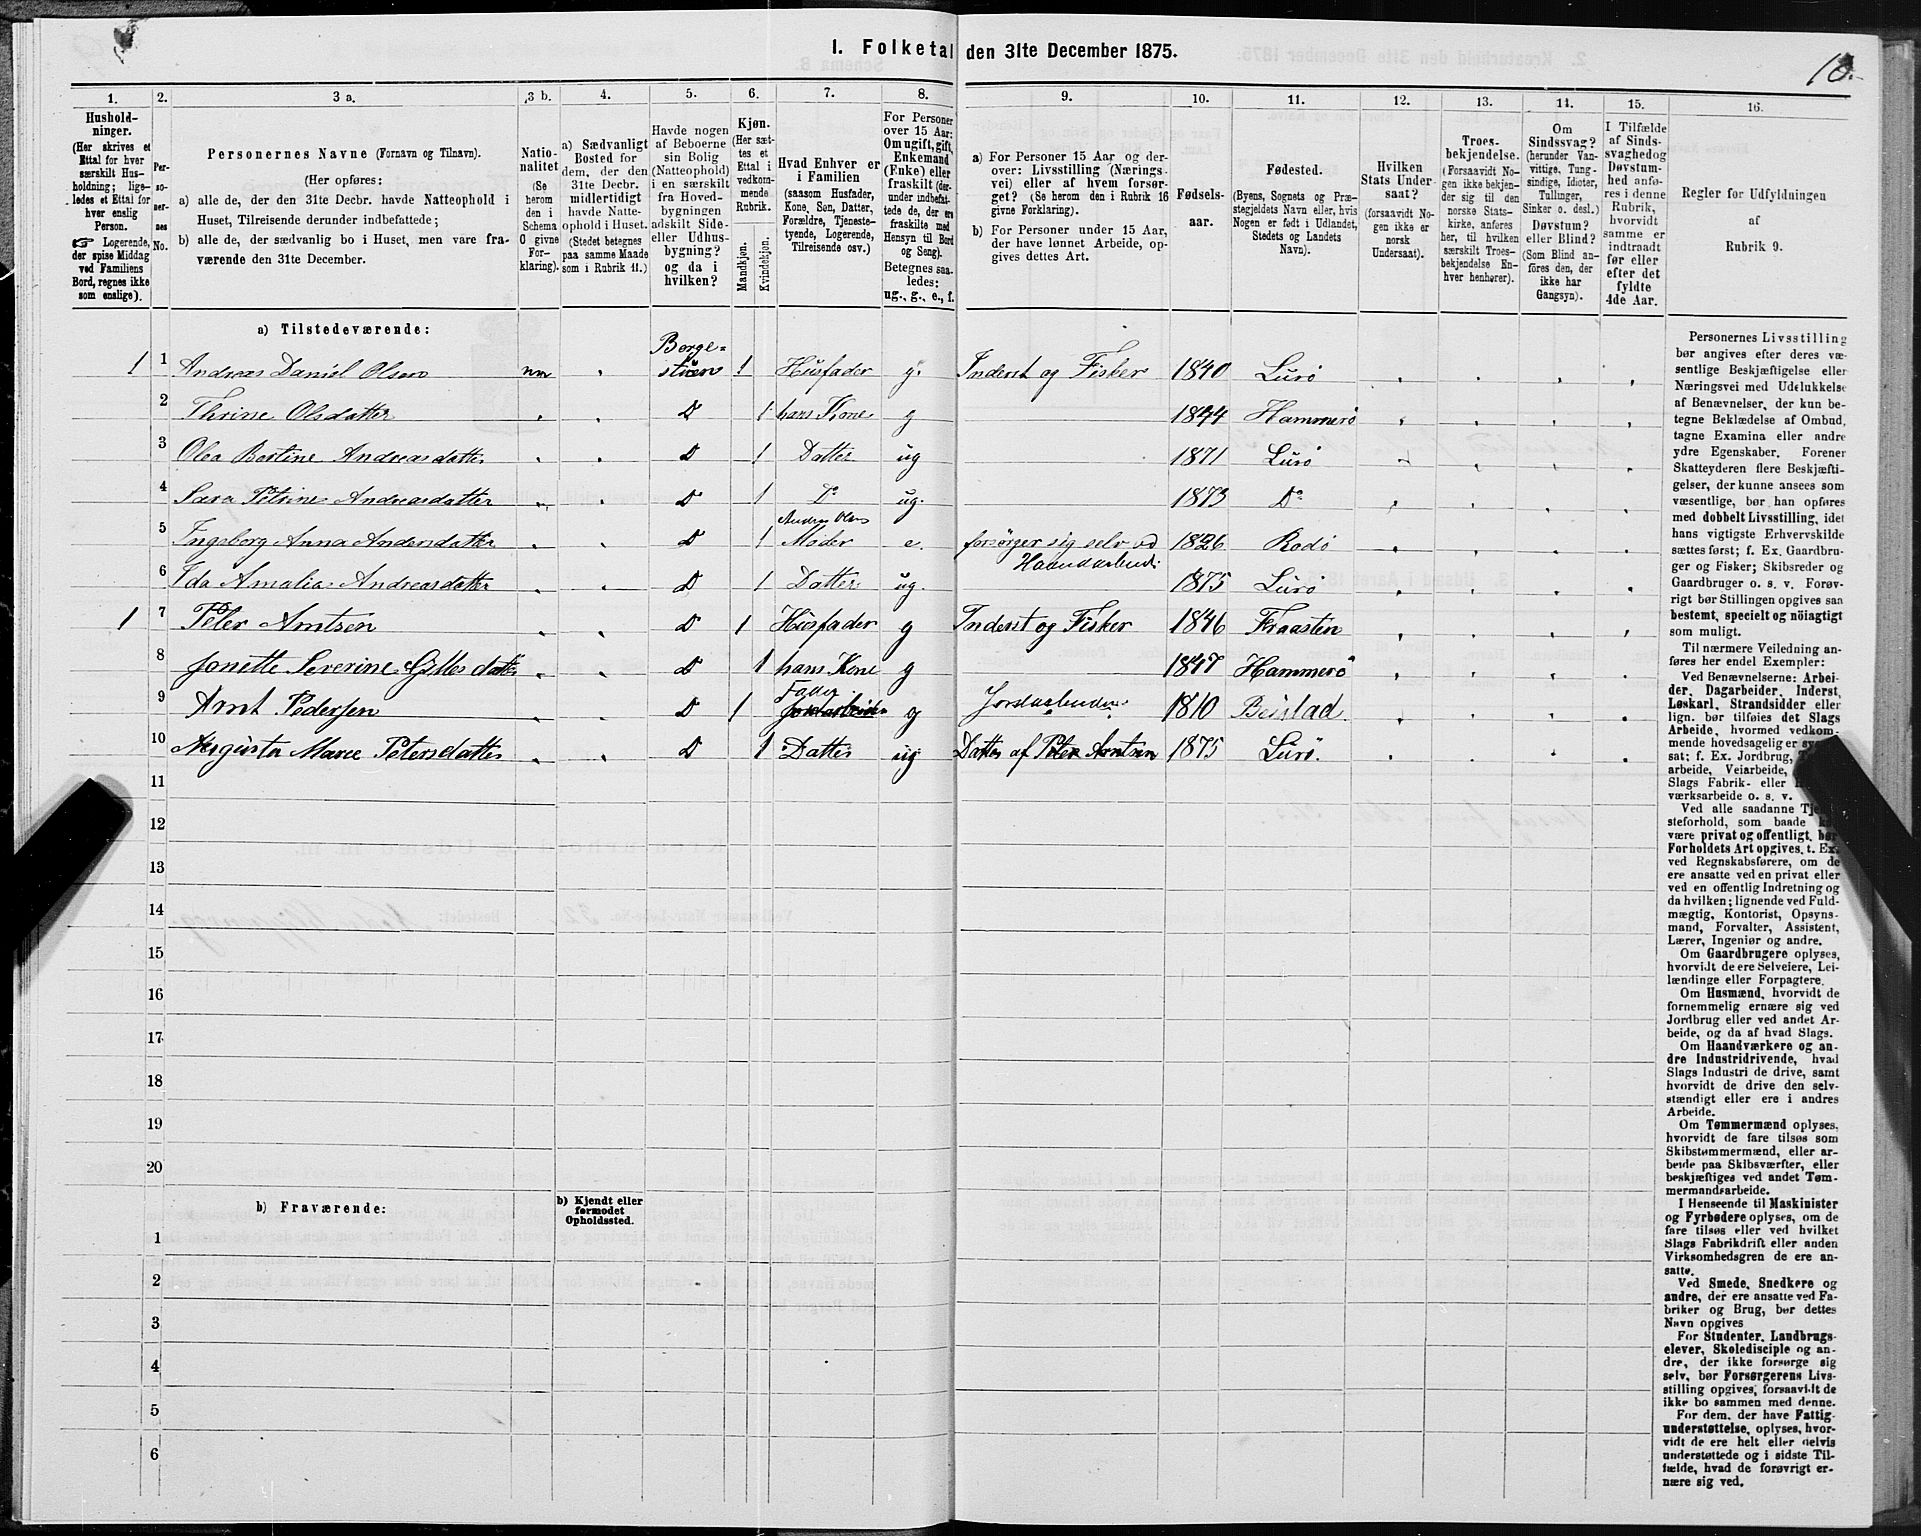 I. Folketal den 31te December 1875.
10.
1. 2. 3 a. 3 b. 4. 5. 6. 7. 8. 9. 10. 11. 12. 13. 14. 15. 16.
Hushold-
ninger.
(Her skrives et
Ettal for hver
særskilt Hus-
holdning; lige-
ledes et Ettal for
hver enslig
Person.
☞ Logerende,
der spise Middag
ved Familiens
Bord, regnes ikke
som enslige).
Per-
so-
ner-
nes
No.
Personernes Navne (Fornavn og Tilnavn).
(Her opføres:
a) alle de, der den 31te Decbr. havde Natteophold i
Huset, Tilreisende derunder indbefattede;
b) alle de, der sædvanlig bo i Huset, men vare fra-
værende den 31te December.
Natio-
nalitet
(Se
herom
den i
Schema
O givne
For-
klaring).
a) Sædvanligt
Bosted for
dem, der den
31te Decbr.
midlertidigt
havde Natte-
ophold i Huset.
(Stedet betegnes
paa samme Maade
som i Rubrik 11.)
Havde nogen
af Beboerne
sin Bolig
(Natteophold)
i en særskilt
fra Hoved-
bygningen
adskilt Side-
eller Udhus-
bygning?
og da i
hvilken?
Kjøn.
(Her sæt-
tes et
Ettal i
vedkom-
mende
Rubrik.
Mandkjøn.
Kvindekjøn.
Hvad Enhver er
i Familien
(saasom Husfader,
Kone, Søn, Datter,
Forældre, Tjeneste-
tyende, Logerende,
Tilreisende osv.)
For Personer
over 15 Aar:
Om ugift, gift,
Enkemand
(Enke) eller
fraskilt (der-
under indbefat-
tede de, der ere
fraskilte med
Hensyn til Bord
og Seng).
Betegnes saa-
ledes:
ug., g., e., f.
a) For Personer 15 Aar og der-
over: Livsstilling (Nærings-
vei) eller af hvem forsør-
get? (Se herom den i Rubrik 16
givne Forklaring).
b) For Personer under 15 Aar,
der have lønnet Arbeide, op-
gives dettes Art.
Fødsels-
aar.
Fødested.
(Byens, Sognets og Præ-
stegjeldets Navn eller, hvis
Nogen er født i Udlandet,
Stedets og Landets
Navn).
Hvilken
Stats Under-
saat?
(forsaavidt No-
gen ikke er
norsk
Undersaat).
Troes-
bekjendelse.
(Forsaavidt No-
gen ikke bekjen-
der sig til den
norske Stats-
kirke, anføres
her, til hvilken
særskilt Troes-
bekjendelse En-
hver henhører).
Om
Sindssvag?
(herunder Van-
vittige, Tung-
sindige, Idioter,
Tullinger,
Sinker o. desl.)
Døvstum?
eller Blind?
(Som Blind an-
føres den, der
ikke har
Gangsyn).
I Tilfælde
af Sinds-
svaghedog
Døvstum-
hed anfø-
res i denne
Rubrik,
hvorvidt
samme er
indtraadt
før eller
efter det
fyldte
4de Aar.
Regler for Udfyldningen
af
Rubrik 9.
a) Tilstedeværende:
1 1 Andreas Daniel Olsen nn Borge-stuen 1 Husfader g. Inderst og Fisker 1840 Lurø
2 Thrine Olsdatter D 1 hans Kone g 1844 Hammerø
3 Olea Bertine Andreasdatter D 1 Datter ug 1871 Lurø
4 Sara Petrine Andreasdatter D 1 Do ug. 1873 Do
5 Ingeborg Anna Andersdatter D 1 Andres Olsens Moder e. forsørger sig selv ved Haandarbeid: 1826 Rodø
6 Ida Amalia Andreasdatter D 1 Datter ug. 1875 Lurø
1 7 Peter Arntsen D 1 Husfader g Inderst og Fisker 1846 Fraasten
8 Jonette Severine Gjttesdatter D 1 hans Kone g 1847 Hammerø
9 Arnt Pedersen D 1 Fader Jordarbeider g Jordarbeider 1810 Beistad
10 Augusta Marie Petersdatter D 1 Datter ug Datter af Peter Arntsen 1875 Lurø.
11
12
13
14
15
16
17
18
19
20
b) Fraværende:
b) Kjendt eller
formodet
Opholdssted.
1
2
3
4
5
6
Personernes Livsstilling
bør angives efter deres væ-
sentlige Beskjæftigelse eller
Næringsvei med Udelukkelse
af Benævnelser, der kun be-
tegne Beklædelse af Ombud,
tagne Examina eller andre
ydre Egenskaber. Forener
Skatteyderen flere Beskjæfti-
gelser, der kunne ansees som
væsentlige, bør han opføres
med dobbelt Livsstilling, idet
hans vigtigste Erhvervskilde
sættes først; f. Ex. Gaardbru-
ger og Fisker; Skibsreder og
Gaardbruger o. s. v. Forøv-
rigt bør Stillingen opgives saa
bestemt, specielt og nöiagtigt
som muligt.
Til nærmere Veiledning an-
føres her endel Exempler:
Ved Benævnelserne: Arbei-
der, Dagarbeider, Inderst,
Løskarl, Strandsidder eller
lign. bør tilføies det Slags
Arbeide, hvormed vedkom-
mende hovedsagelig er
sat; f. Ex. Jordbrug,
arbeide, Veiarbeide,
Slags Fabrik- eller
værksarbeide o. s. v.
Ved alle saadanne
steforhold, som baade
være privat og offentligt, bør
Forholdets Art opgives, t. Ex.
ved Regnskabsførere, om de
ere ansatte ved en privat eller
ved en offentlig Indretning og
da hvilken; lignende ved Fuld-
mægtig, Kontorist, Opsyns-
mand, Forvalter, Assistent,
Lærer, Ingeniør og andre.
Om Gaardbrugere oplyses,
hvorvidt de ere Selveiere, Lei-
lændinge eller Forpagtere.
Om Husmænd, hvorvidt de
fornemmelig ernære sig ved
Jordbrug eller ved andet Ar-
beide, og da af hvad Slags.
Om Haandværkere og an-
dre Industridrivende, hvad
Slags Industri de drive, samt
hvorvidt de drive den selv-
stændigt eller ere i andres
Arbeide.
Om Tømmermænd oplyses,
hvorvidt de fare tilsøs som
Skibstømmermænd, eller ar-
beide paa Skibsværfter, eller
beskjæftiges ved andet Tøm-
mermandsarbeide.
I Henseende til Maskinister
og Fyrbødere oplyses, om de
fare tilsøs eller ved hvilket
Slags Fabrikdrift eller anden
Virksomhedsgren de ere an-
satte.
Ved Smede, Snedkere og
andre, der ere ansatte ved Fa-
briker og Brug, bør dettes
Navn opgives
For Studenter, Landbrugs-
elever, Skoledisciple og an-
dre, der ikke forsørge sig
selv, bør Forsørgerens Livs-
stilling opgives, forsaavidt de
ikke bo sammen med denne.
For dem, der have Fattig-
understøttelse, oplyses, hvor-
vidt de ere helt eller delvis
understøttede og i sidste Til-
fælde, hvad de forøvrigt er-
nære sig ved.